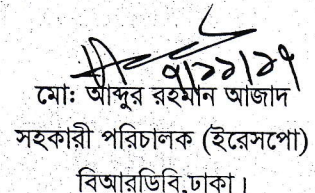 ৭/১১/১৭
মোঃ আব্দুর রহমান আজাদ
সহকারী পরিচালক (ইরেসপো)
বিআরডিবি,ঢাকা।